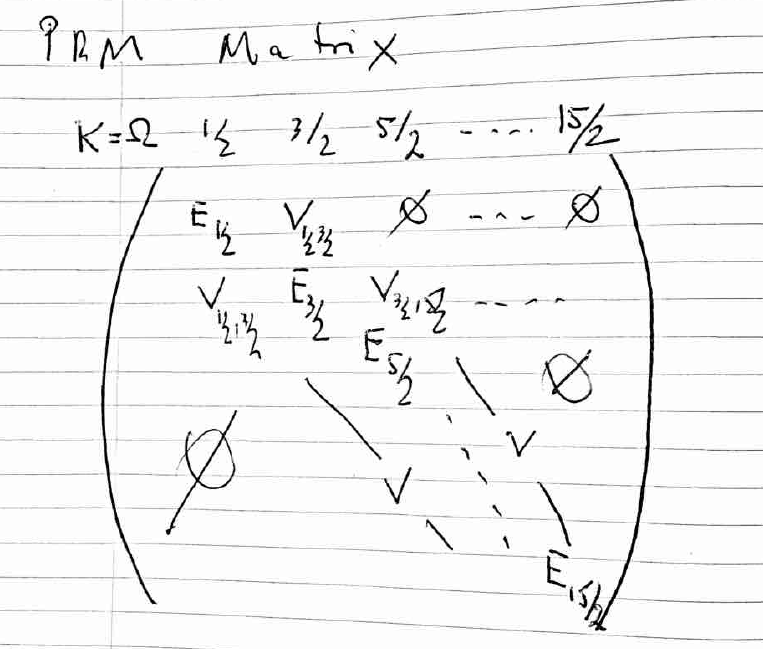 PRM Matrix
K=Ω 1/2 3/2 5/2 ---- 15/2
E_{1/2} V_{1/2 3/2} Ø ---- Ø
V_{1/2,3/2} E_{3/2} V_{3/2,5/2} ----
E_{5/2} Ø
V
Ø V
E_{15/2}